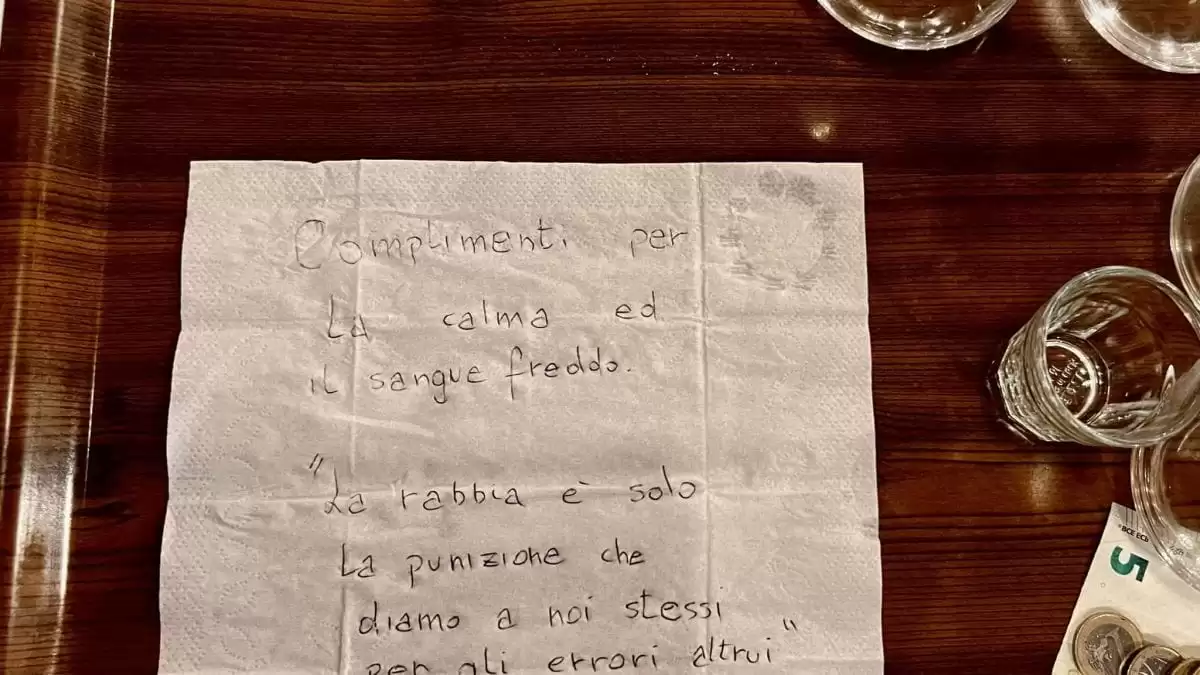 Complimenti per
La calma ed
il sangue freddo.
"La rabbia è solo
La punizione che
diamo a noi stessi
per gli errori altrui"
BCE ECB
5